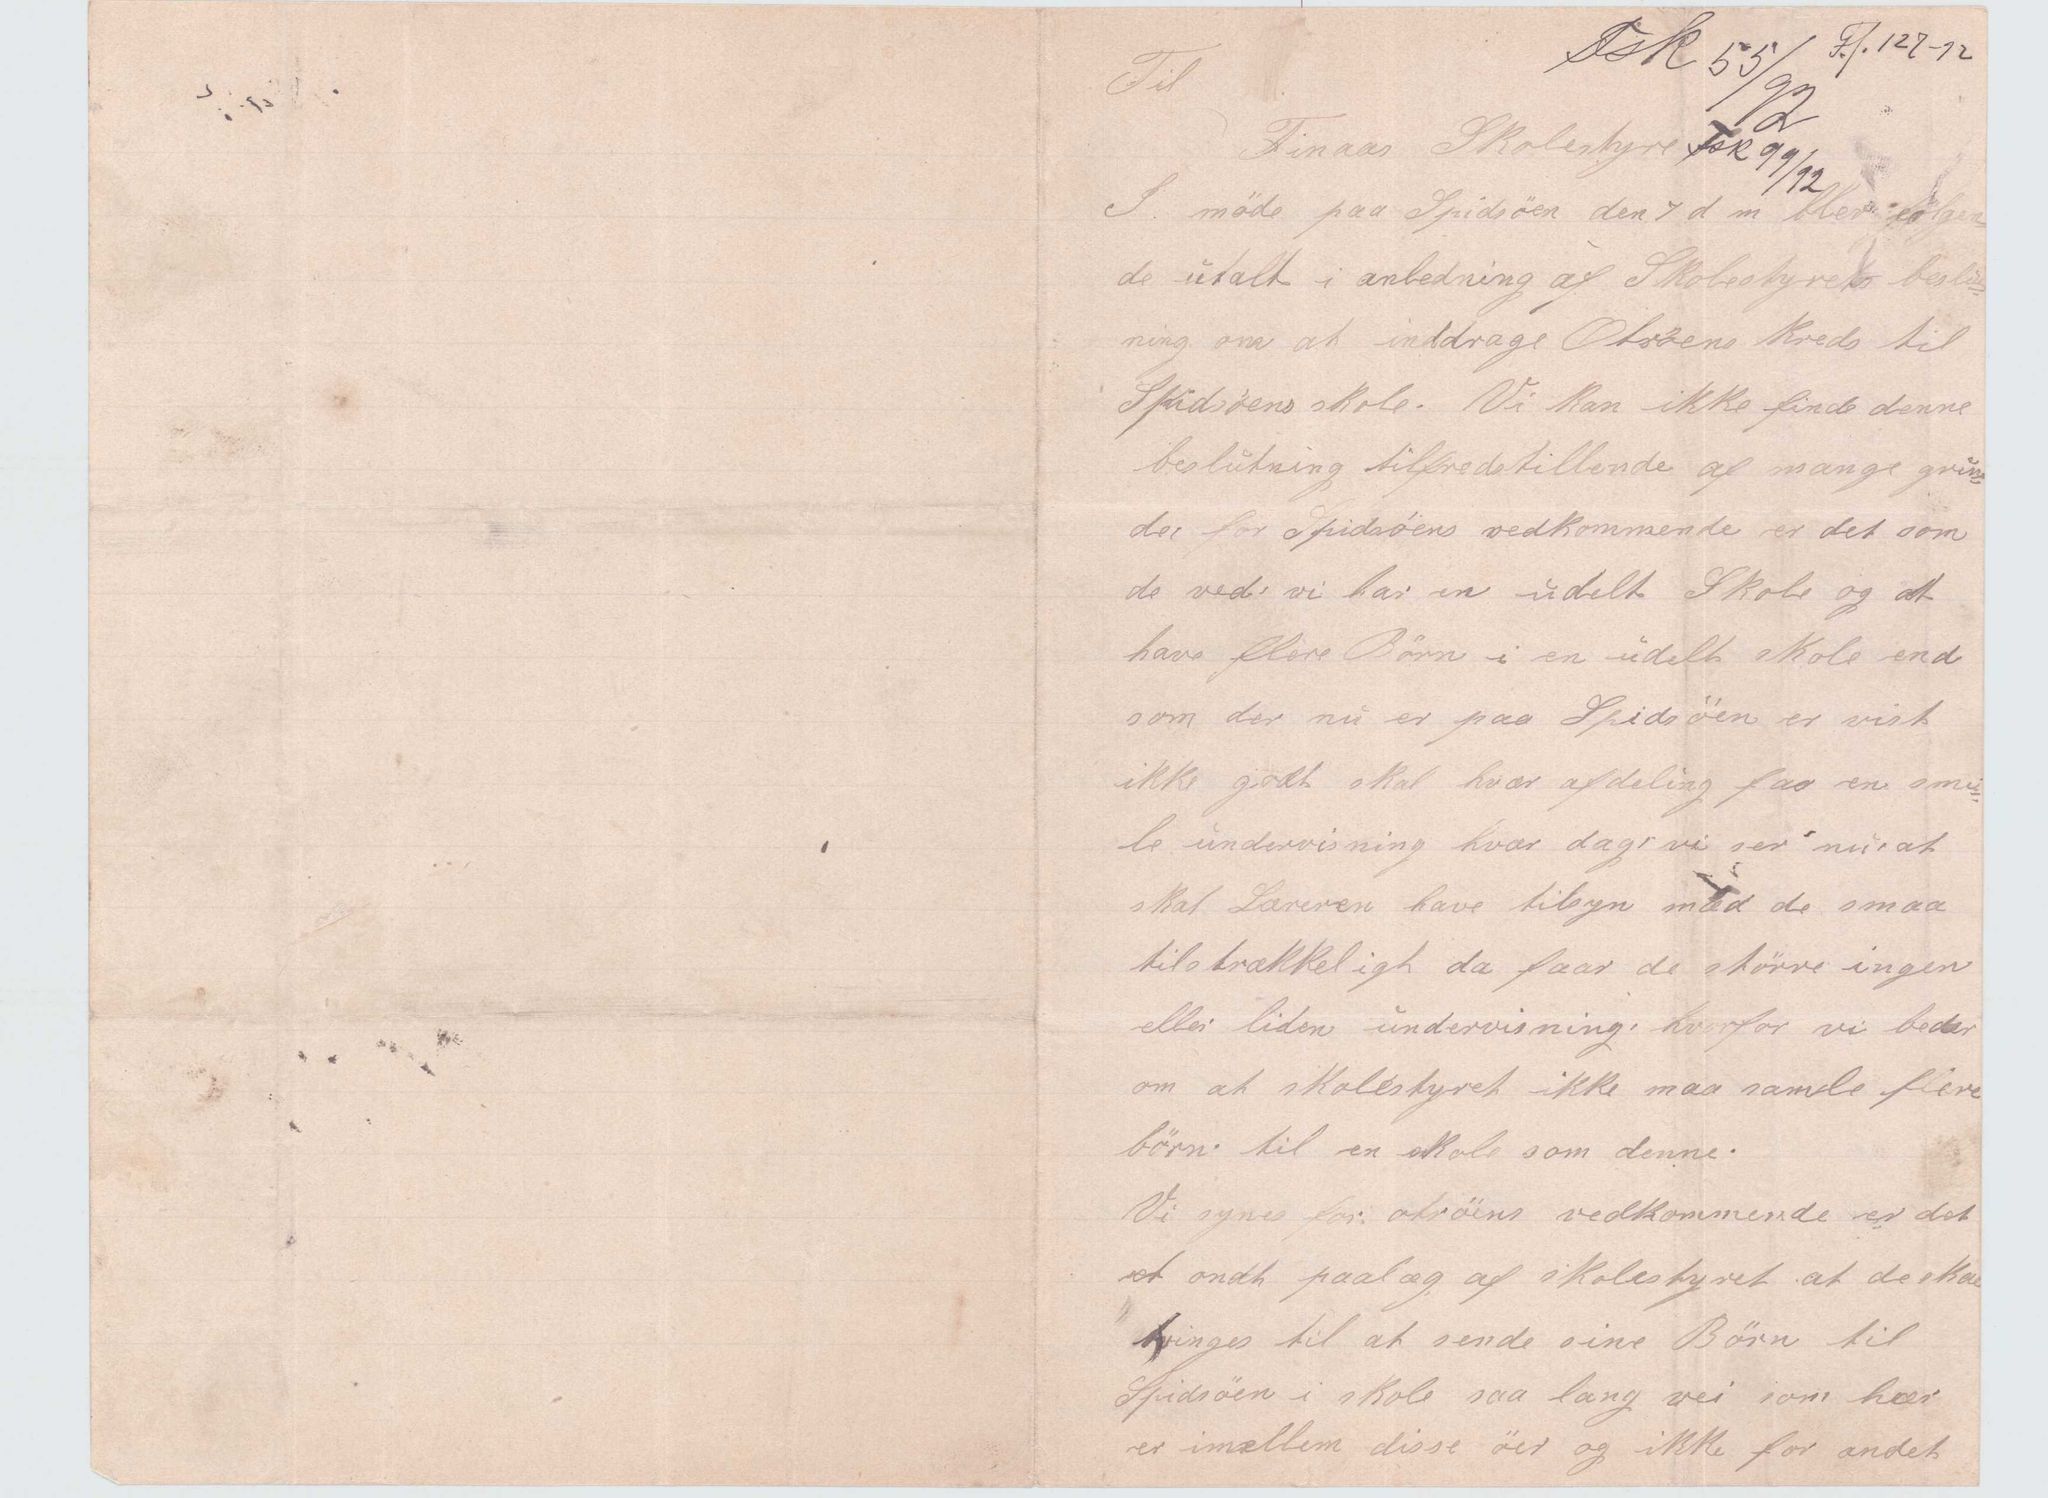 Fsk 55/92 F.f. 127-12
Til
Finaas Skolestyre Fsk 99/12
I. möde paa Spidsöen den 7 d m blev fölgen=
de utalt i anbedning af Skolestyrets beslut=
ning om at inddrage Otröens Kreds til
Spidsöens skole. Vi kan ikke finde denne
beslutning tilfredstillende af mange grun=
de: for Spidsöens vedkommende er det som
de ved: vi har en udelt Skole og at
have flere Börn i en udelt skole end
som der nu er paa Spidsöen er vist
ikke godt skal hvær afdeling faa en smu=
le undervisning hvær dag: vi ser nu: at
skal Læreren have tilsyn med de smaa
tilstrækkeligt da faar de större ingen
eller liden undervisning: hvorfor vi beder
om at skolestyret ikke maa samle flere
börn: til en skole som denne.
Vi synes for: otröens vedkommende er det
et ondt paalæg af skolestyret at de skal
tvinges til at sende sine Börn til
Spidsöen i skole saa lang vei som her
er imellem disse öer og ikke for andet